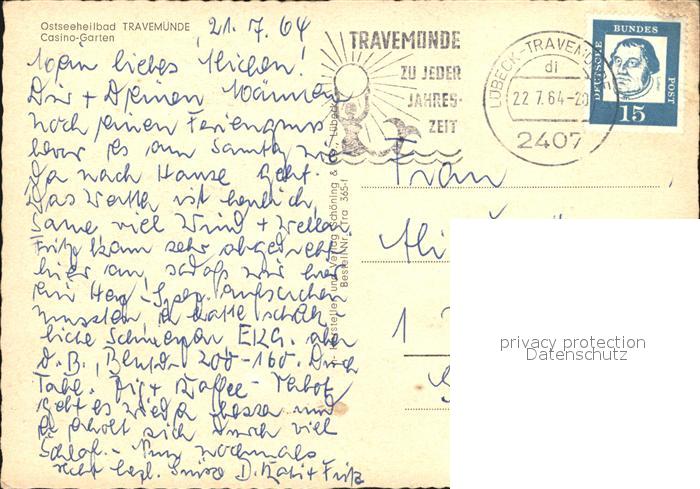 Ostseeheilbad TRAVEMÜNDE
Casino-Garten
21. 7. 64
Mein liebes Michen!
Dir + Deinen Männern
noch einen Feriengruss
bevor es am Samstag wie
der nach Hause geht.
Das Wetter ist herrlich,
viel Wind + Wellen
Fritz kam sehr abgedreht
hier an, sodaß wir hier
ein Herz-Spez. aufsuchen
mussten er hatte schreck
liche Schmerzen EKG.
o.B., 200-160. Durch
Tabl. Kaffee-Verbot
geht es wieder besser und
er erholt sich durch viel
Schlaf. - Nun nochmals
recht herzl. Grüsse D. Käti + Fritz
Hersteller und Verlag Schöning & Co., Lübeck
Bestell-Nr. Tra 365-f
TRAVEMÜNDE
ZU JEDER
JAHRES-
ZEIT
LÜBECK-TRAVEMÜNDE
di
22.7.64-20
2407
DEUTSCHE
BUNDES
POST
15
Frau
1
privacy protection
Datenschutz